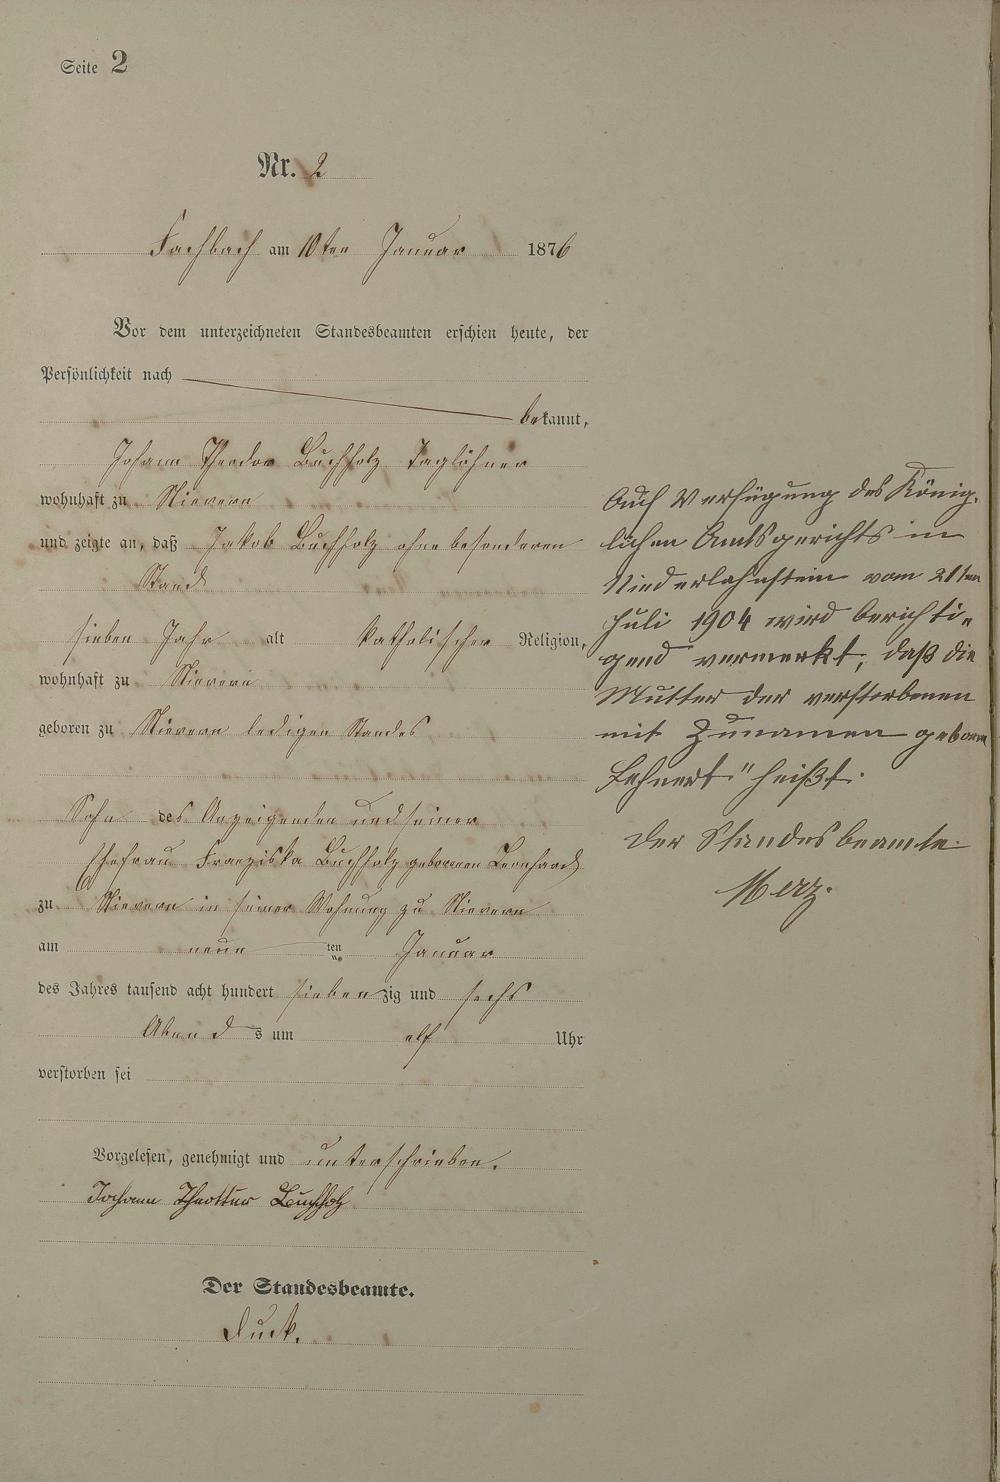 Seite 2
Nr. 2
Fachbach am 10ten Januar 1876
Vor dem unterzeichneten Standesbeamten erschien heute, der
Persönlichkeit nach
bekannt,
Johann Theodor Buchholz Taglöhner
wohnhaft zu Nievern
und zeigte an, daß Jakob Buchholz ohne besonderen
Stand
sieben Jahr alt katholischer Religion,
wohnhaft zu Nievern
geboren zu Nievern ledigen Standes
Sohn des Anzeigenden und seiner
Ehefrau Franziska Buchholz geborenen
zu Nievern in seiner Wohnung zu Nievern
am neun ten Januar
des Jahres tausend acht hundert siebenzig und sechs
Abends um elf Uhr
verstorben sei
Vorgelesen, genehmigt und unterschrieben.
Johann Buchholz
Der Standesbeamte.
Auf Verfügung des König-
lichen Amtsgerichts in
Niederlahnstein vom 21ten
Juli 1904 wird berichti-
gend vermerkt, daß die
Mutter der verstorbenen
mit Zunamen geboren
Lehnert" heißt.
Der Standesbeamte.
Merz.